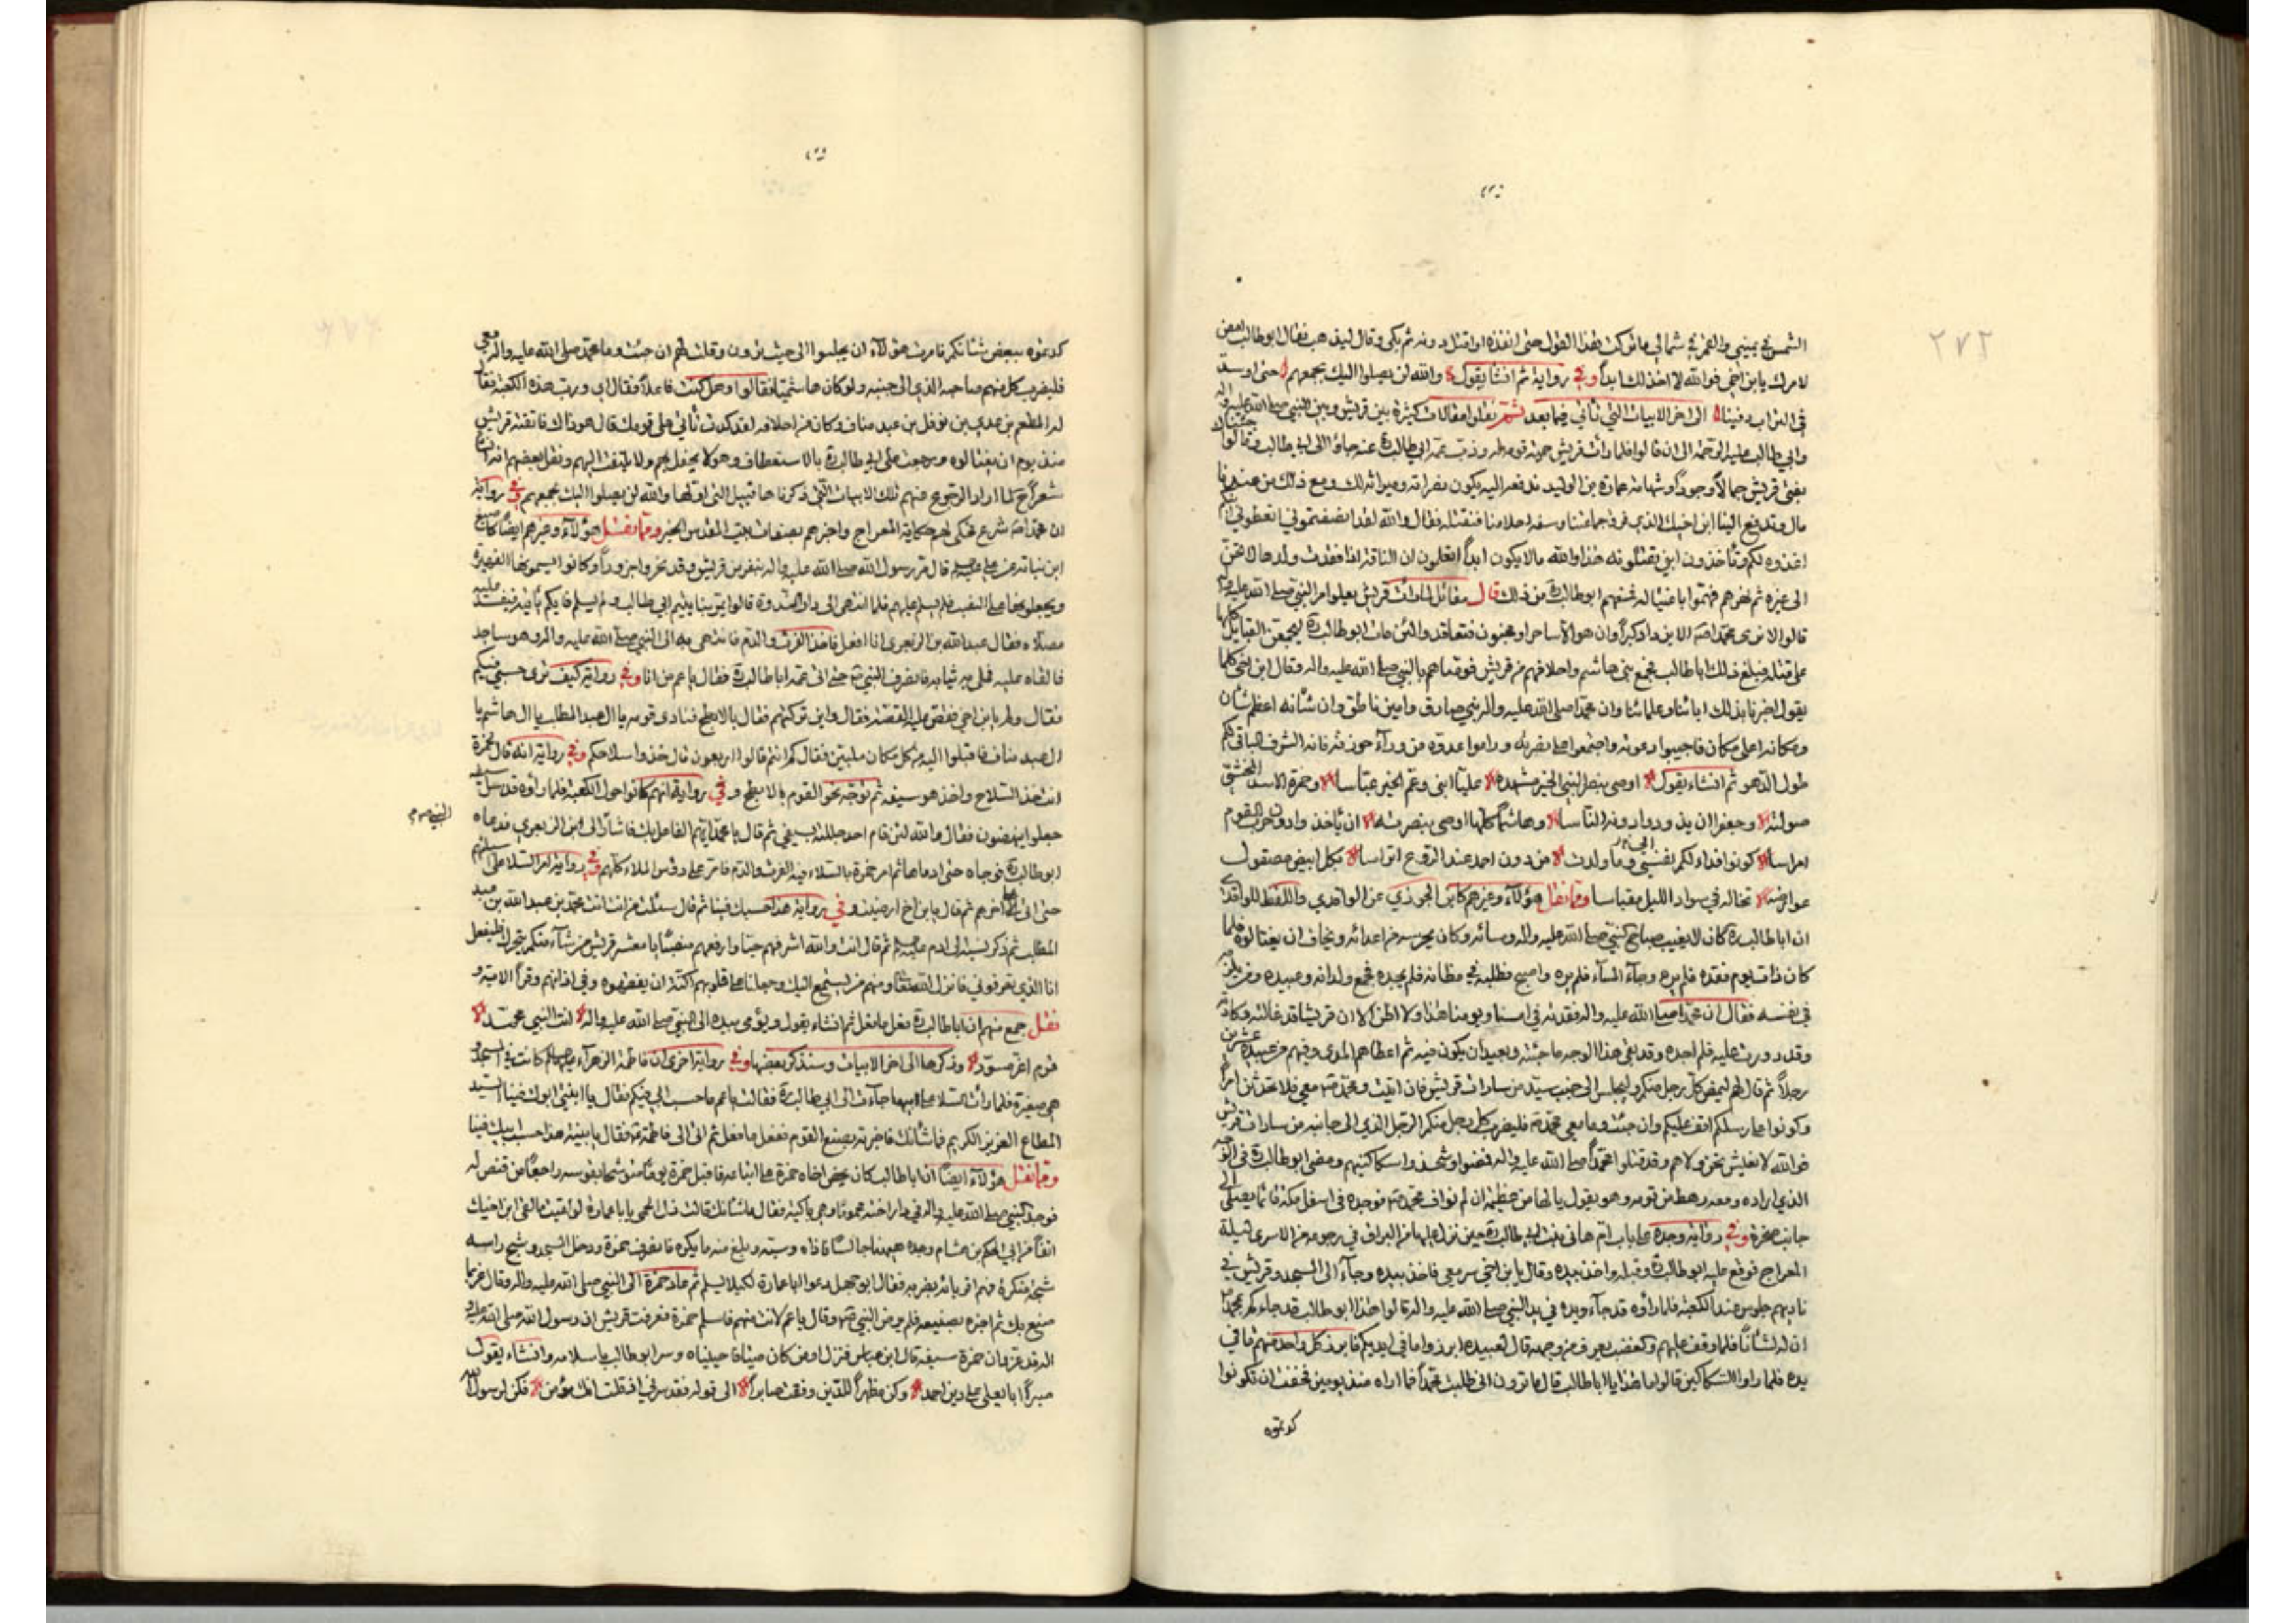 ٢٧٢
الشمس في يميني والقمر في شمالي ما تركت هذا القول حتى انفذه او اقتل دونه ثم بكى وقال ليذهب فقال ابو طالب امض
لامرك يا بن اخي فوالله لا اخذلك ابدا وفي رواية ثم انشأ يقول والله لن يصلوا اليك بجمعهم حتى اوسد
في التراب دفينا الى اخر الابيات التي تأتي فيما بعد ثم نقلوا مقالات كثيرة بين قريش وبين النبي صلى الله عليه واله
وابي طالب عليه الرحمة الى ان قالوا فلما رأت قريش حمية قومه وذب عمه ابي طالب عنه جاؤا الى ابي طالب وقالوا جئناك
بفتى قريش جمالا وجودا وشهامة عمارة بن الوليد ندفعه اليه يكون نصرته وميراثه لك ومع ذلك من عندنا
مال وتدفع الينا ابن اخيك الذي فرق جماعتنا وسفه احلامنا فنقتله فقال والله لقد انصفتموني اتعطوني ابنكم
اغذوه لكم وتأخذون ابني تقتلونه هذا والله ما لا يكون ابدا اتعلمون ان الناقة اذا فقدت ولدها لا تحن
الى غيره ثم نهرهم فهموا باغتياله فمنعهم ابو طالب من ذلك قال مقاتل لما رأت قريش يعلو امر النبي صلى الله عليه واله
قالوا لا نرى محمدا يزداد الا كبرا وان هو الا ساحر او مجنون فتعاقدوا لئن مات ابو طالب ليجمعن القبايل كلها
على قتله فبلغ ذلك ابا طالب فجمع بني هاشم واحلافهم من قريش فوصاهم بالنبي صلى الله عليه واله وقال ابن اخي كلما
يقول اخبرنا بذلك اباؤنا وعلماؤنا وان محمدا صلى الله عليه واله نبي صادق وامين ناطق وان شأنه اعظم شأن
ومكانه اعلى مكان فاجيبوا دعوته واجتمعوا على نصرته وراموا عدوه من وراء حوزته فانه الشرف الباقي لكم
طول الدهر ثم انشاء يقول اوصي بنصر النبي الخير مشهده عليا ابني وعم الخير عباسا وحمزة الاسد المخشي
صولته وجعفرا ان يذودوا دونه الناسا وهاشما كلها اوصي بنصرته ان يأخذوا دون حرب القوم
امراسا كونوا فداء لكم نفسي وما ولدت من دون احمد عند الروع اتراسا بكل ابيض مصقول
عوارضه تخاله في سواد الليل مقباسا ومما نقل هؤلاء وغيرهم كابن الجوزي عن الواقدي واللفظ للواقدي
ان ابا طالب كان لا يغيب صباح النبي صلى الله عليه واله ومسائه وكان يحرسه من اعدائه ويخاف ان يغتالوه فلما
كان ذات يوم فقده فلم يره وجاء المساء فلم يره واصبح فطلبه في مظانه فلم يجده فجمع ولدانه وعبيده ومن يلزمه
في نفسه فقال ان محمدا صلى الله عليه واله فقدته في امسنا ويومنا هذا ولا اظن الا ان قريشا قد غالته وكادته
وقد دورت عليه فلم اجده وقد بقي هذا الوجه ما جئته وبعيد ان يكون فيه ثم اعطاهم المدى وفيهم من عبيده عشرين
رجلا ثم قال لهم ليمض كل رجل منكم وليجلس الى جنب سيد من سادات قريش فان اتيت ومحمد معي فلا تحدثن امرا
وكونوا على رسلكم اقف عليكم وان جئت وما معي محمد فليضرب كل رجل منكم الرجل الذي الى جانبه من سادات قريش
فوالله لا نعيش نحن ولا هم وقد قتلوا محمدا صلى الله عليه واله فمضوا وشحذوا سكاكينهم ومضى ابو طالب في الوجه
الذي اراده ومعه رهط من قومه وهو يقول يا لها من عظيمة ان لم نواف محمدا فوجده في اسفل مكة قائما يصلي الى
جانب صخرة وفي رواية وجده على باب ام هاني بنت ابي طالب حين نزل عليها من البراق في رجوعه من الاسرى ليلة
المعراج فوقع عليه ابو طالب وقبله واخذ بيده وقال يا بن اخي سر معي فاخذ بيده وجاء الى المسجد وقريش في
ناديهم جلوس عند الكعبة فلما رأوه قد جاء ويده في يد النبي صلى الله عليه واله قالوا هذا ابو طالب قد جاءكم بمحمد
ان له لشأنا فلما وقف عليهم والغضب يعرف من وجهه قال لعبيده ابرزوا ما في ايديكم فابرز كل واحد منهم ما في
يده فلما راوا السكاكين قالوا ما هذا يا ابا طالب قال ما ترون اني طلبت محمدا فما اراه منذ يومين فخفت ان تكونوا
كدتموه
كدتموه ببعض شأنكم فامرت هؤلاء ان يجلسوا الى حيث ترون وقلت لهم ان جئت وما محمد صلى الله عليه واله معي
فليضرب كل منهم صاحبه الذي الى جنبه ولو كان هاشميا فقالوا وهل كنت فاعلا فقال اي ورب هذه الكعبة فقال
له المطعم بن عدي بن نوفل بن عبد مناف وكان من احلافه لقد كدت تأتي على قومك قال هو ذاك فاتقته قريش
منذ يوم ان يغتالوه ورجعت على ابي طالب بالاستعطاف وهو لا يحفل بهم ولا يلتفت اليهم ونقل بعضهم انه انشأ
شعرا لما اراد الرجوع عنهم تلك الابيات التي ذكرناها قبيل التي اولها والله لن يصلوا اليك بجمعهم وفي رواية
ان محمدا شرع يحكي لهم حكاية المعراج واخبرهم بصفات بيت المقدس الخبر ومما نقل هؤلاء وغيرهم ايضا كاصبغ
ابن نباتة عن علي قال مر رسول الله صلى الله عليه واله بنفر من قريش وقد نحروا جزورا وكانوا يسمونها الفهيرة
ويجعلونها على النصب فلم يسلم عليهم فلما انتهى الى دار الندوة قالوا يمر بنا يتيم ابي طالب ولم يسلم فايكم يأتيه فيفسد عليه
مصلاه فقال عبد الله بن الزبعرى انا افعل فاخذ الفرث والدم فانتهى به الى النبي صلى الله عليه واله وهو ساجد
فالقاه عليه فملى به ثيابه فانصرف النبي حتى اتى عمه ابا طالب فقال يا عم من انا وفي رواية كيف ترى حسبي فيكم
فقال ولم يا بن اخي فقص عليه القصة فقال واين تركتهم فقال بالابطح فنادى قومه يا ال عبد المطلب يا ال هاشم يا
ال عبد مناف فاقبلوا اليه من كل مكان ملبين فقال كم انتم قالوا اربعون قال خذوا سلاحكم وفي رواية انه قال لحمزة
انت خذ السلاح واخذ هو سيفه ثم توجه نحو القوم بالابطح وفي رواية انهم كانوا حول الكعبة فلما رأوه قد سل سيفه
جعلوا ينهضون فقال والله لئن قام احد جللته بسيفي ثم قال يا محمد ايهم الفاعل بك فاشار الى ابن الزبعرى فدعاه
ابو طالب فوجاه حتى ادماها ثم امر حمزة بالسلاء فيه الفرث والدم فامر على رؤس الملاء كلهم وفي رواية امر السلا على سبالهم
حتى اتى على اخرهم ثم قال يا بن اخ ارضيت وفي رواية هذا حسبك فينا ثم قال سئلت من انت انت محمد بن عبد الله بن عبد
المطلب ثم ذكر نسبه الى ادم ثم قال انت والله اشرفهم حسبا وارفعهم منصبا يا معشر قريش من شاء منكم يتحرك فليفعل
انا الذي تعرفوني فانزل الله تعالى ومنهم من يستمع اليك وجعلنا على قلوبهم اكنة ان يفقهوه وفي اذانهم وقرا الاية و
نقل جمع منهم ان ابا طالب فعل ما فعل ثم انشاء يقول ويؤمي بيده الى النبي صلى الله عليه واله انت النبي محمد
قرم اغر مسود وذكرها الى اخر الابيات وسنذكر بعضها وفي رواية اخرى ان فاطمة الزهراء كانت في المسجد و
هي صغيرة فلما رأت السلا على ابيها جاءت الى ابي طالب فقالت يا عم ما حسب ابي فيكم فقال يا ابنتي ابوك فينا السيد
المطاع العزيز الكريم فما شأنك فاخبرته بصنع القوم ففعل ما فعل ثم اتى الى فاطمة فقال يا بنية هذا حسب ابيك فينا
ومما نقل هؤلاء ايضا ان ابا طالب كان يحض اخاه حمزة على اتباعه فاقبل حمزة يوما متوشحا بقوسه راجعا من قنص له
فوجد النبي صلى الله عليه واله في دار اخته مهموما وهي باكية فقال ما شأنك قالت ذل الحمى يا با عمارة لو لقيت ما لقي ابن اخيك
انفا من ابي الحكم بن هشام وجده هيهنا جالسا فاذاه وسبه وبلغ منه ما يكره فانصرف حمزة ودخل المسجد وشج راسه
شجة منكرة فهم اقرباؤه بضربه فقال ابو جهل دعوا ابا عمارة لكيلا يسلم ثم عاد حمزة الى النبي صلى الله عليه واله وقال عز بما
صنع بك ثم اخبره بصنيعه فلم يرض النبي وقال يا عم لانت منهم فاسلم حمزة فعرفت قريش ان رسول الله صلى الله عليه و
اله قد عز وان حمزة سيمنعه قال ابن عباس فنزل اومن كان ميتا فاحييناه وسر ابو طالب باسلامه وانشاء يقول
صبرا ابا يعلى على دين احمد وكن مظهرا للدين وفقت صابرا الى قوله فقد سرني اذ قلت انك مؤمن فكن لرسول الله